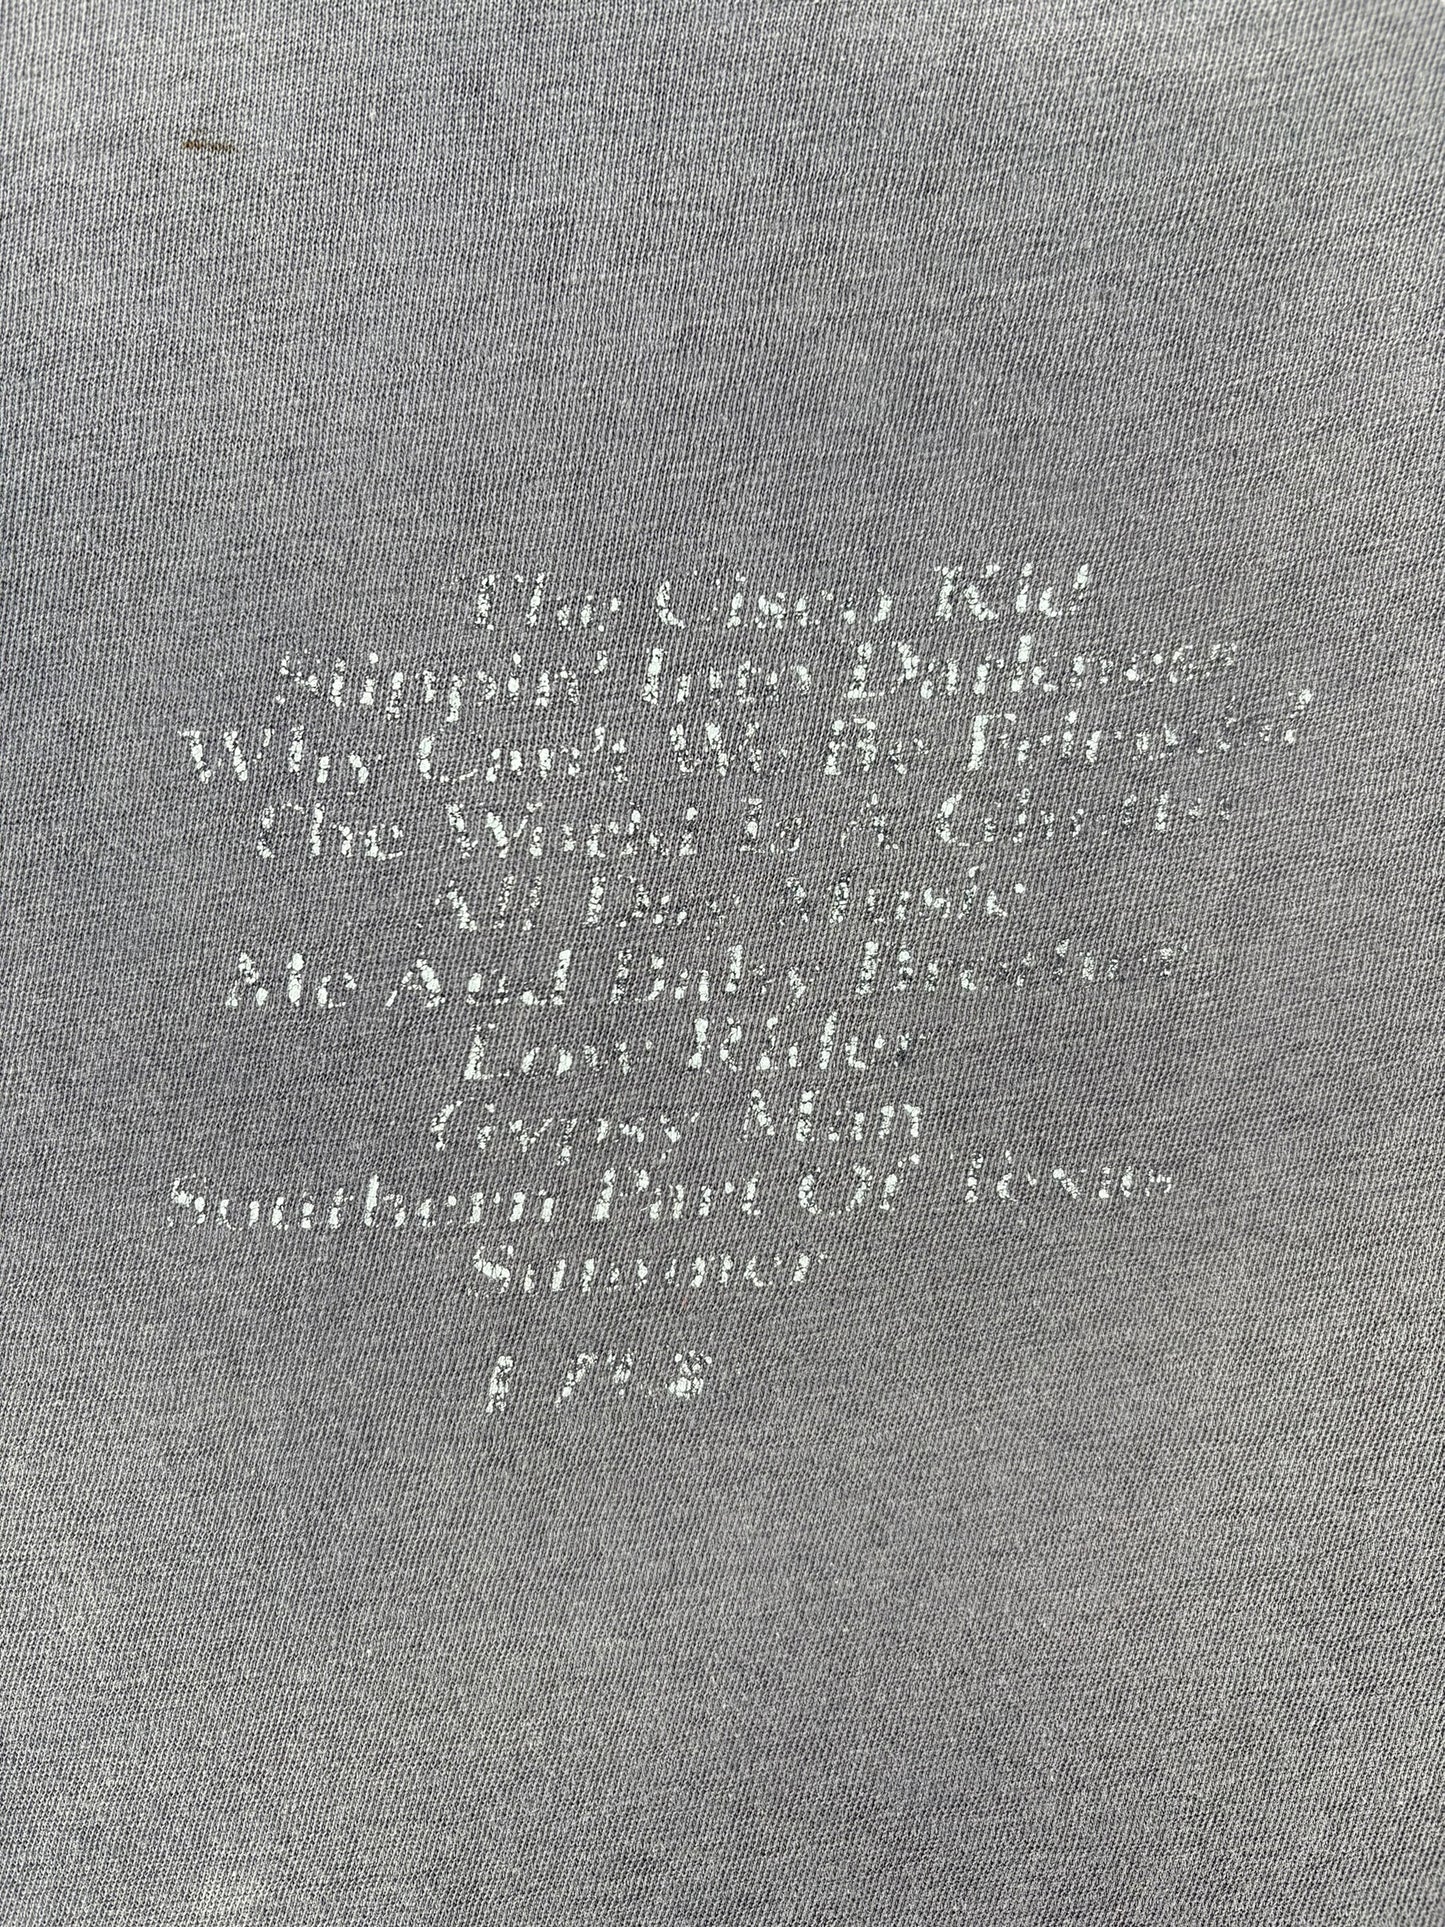 The Cisco Kid
Slippin' Into Darkness
Why Can't We Be Friends?
The World Is A Ghetto
All Day Music
Me And Baby Brother
Low Rider
Gypsy Man
Southern Part Of Texas
Summer